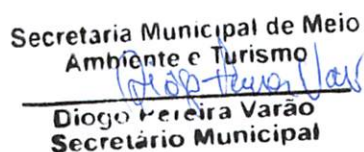 Secretaria Municipal de Meio
Ambiente e Turismo
Diogo Pereira Varão
Secretário Municipal